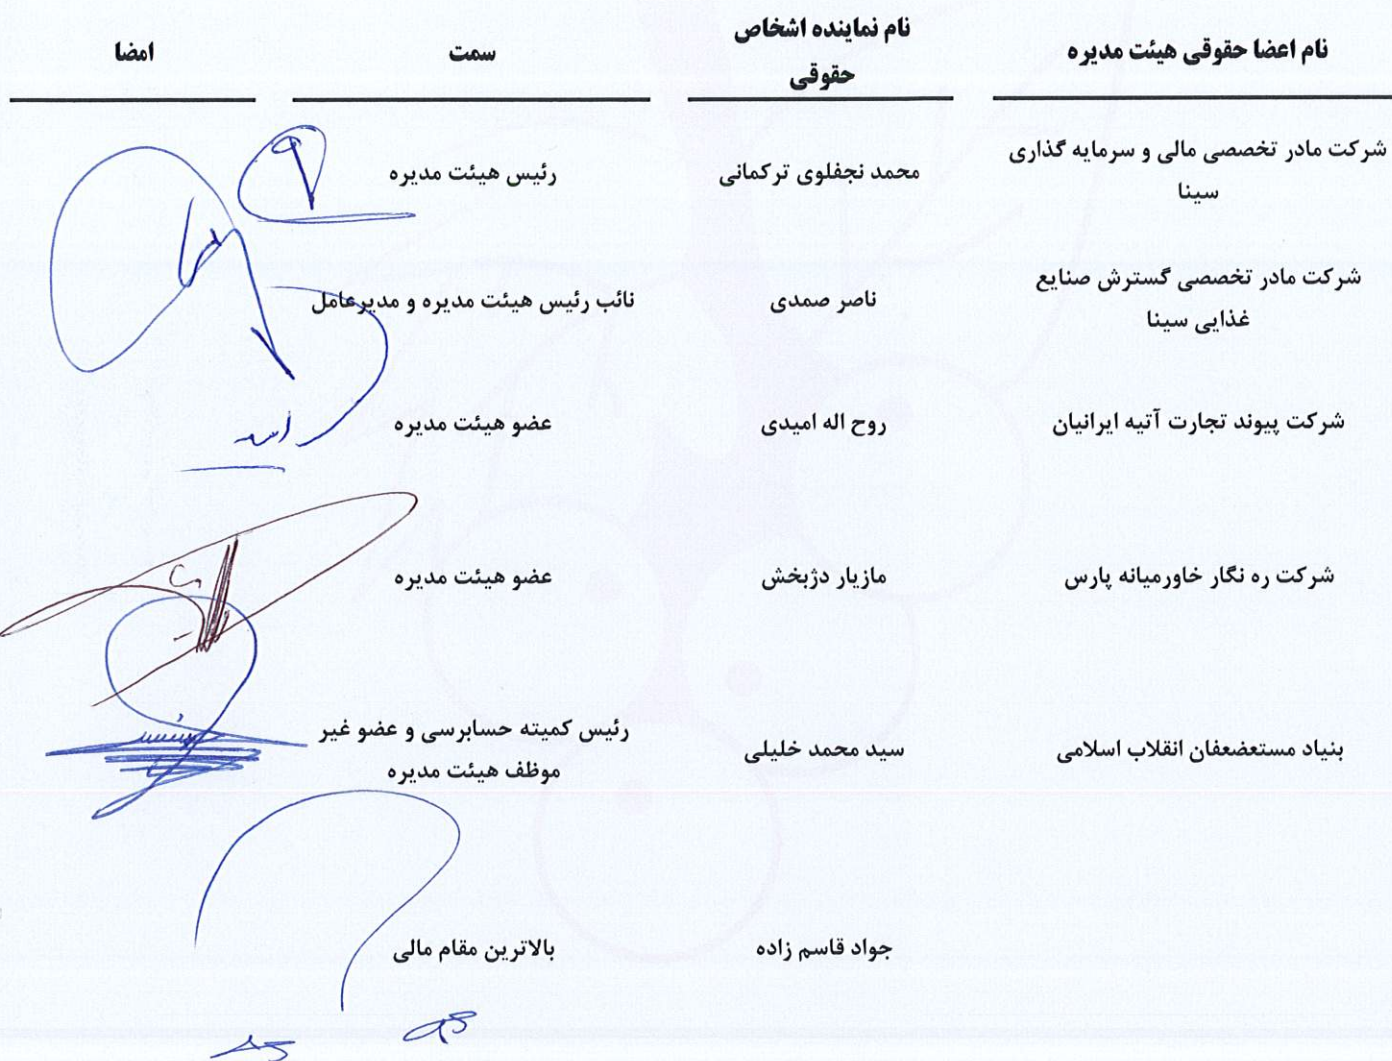 نام اعضا حقوقی هیئت مدیره
نام نماینده اشخاص
حقوقی
سمت
امضا
شرکت مادر تخصصی مالی و سرمایه گذاری
سینا
محمد نجفلوی ترکمانی
رئیس هیئت مدیره
شرکت مادر تخصصی گسترش صنایع
غذایی سینا
ناصر صمدی
نائب رئیس هیئت مدیره و مدیرعامل
شرکت پیوند تجارت آتیه ایرانیان
روح اله امیدی
عضو هیئت مدیره
شرکت ره نگار خاورمیانه پارس
مازیار دژبخش
عضو هیئت مدیره
بنیاد مستعضعفان انقلاب اسلامی
سید محمد خلیلی
رئیس کمیته حسابرسی و عضو غیر
موظف هیئت مدیره
جواد قاسم زاده
بالاترین مقام مالی